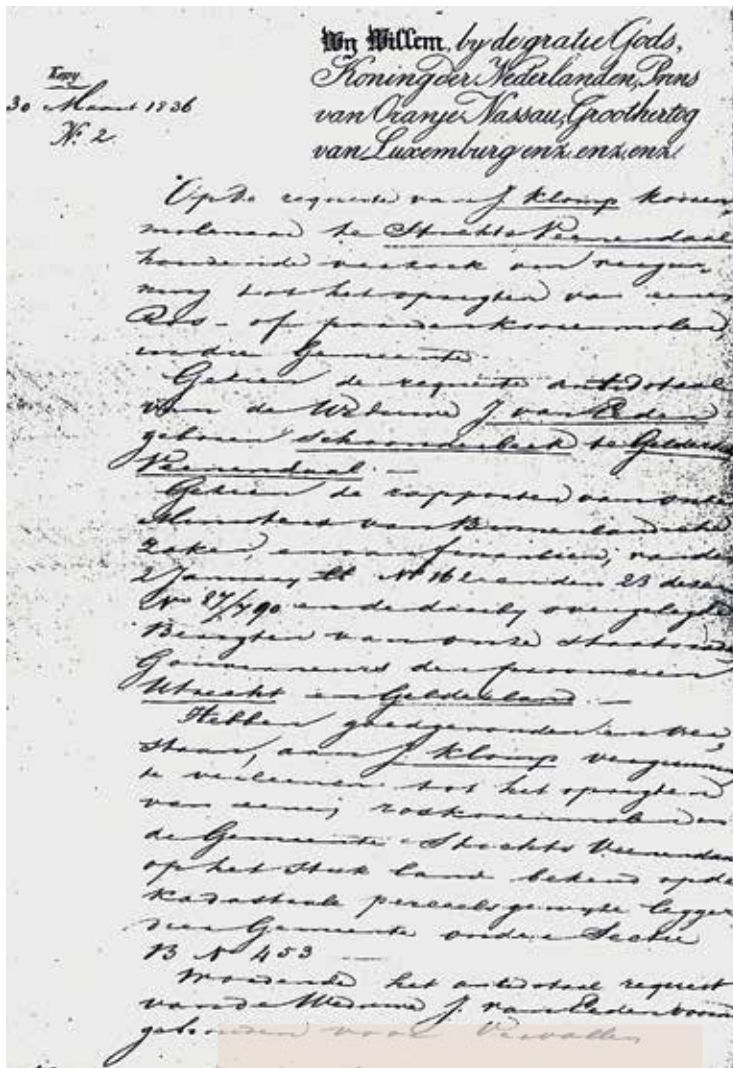 Wij Willem, by de gratie Gods,
Koning der Nederlanden, Prins
van Oranje Nassau, Groothertog
van Luxemburg enz. enz. enz.
Kopy
30 Maart 1836
No. 2.
Op de requeste van J Klomp koren
molenaar te Stichts Veenendaal
houdende verzoek om vergun
ning tot het opregten van eenen
Ros- of paardenkorenmolen
in die Gemeente.
Gezien de requeste antidotaal
van de Weduwe J van Eeden
geboren Schoonderbeek te Gelders
Veenendaal. —
Gezien de rapporten van onze
Ministers van Binnenlandsche
Zaken, en van financien, van den
2 January ll No 16 en den 23 dezer
No 27/790 en de daarby overgelegde
Berigten van onze Staatsraden
Gouverneurs der provincien
Utrecht en Gelderland. —
Hebben goedgevonden en ver
staan, aan J Klomp vergunning
te verleenen tot het opregten
van eenen roskorenmolen in
de Gemeente Stichts Veenendaal
op het stuk land bekend op de
kadastrale perceelsgewyze legger
dier Gemeente onder Sectie
B No 453 —
Wordende het antidotaal request
van de Weduwe J. van Eeden voorn
gehouden voor Vervallen